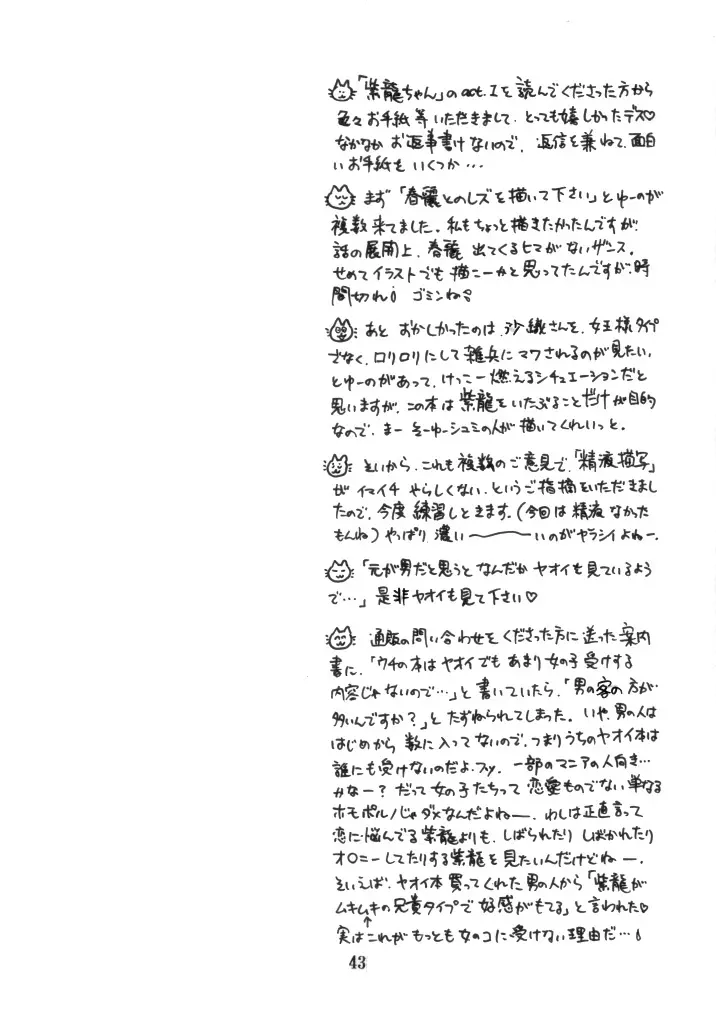 「紫龍ちゃん」のact.Iを読んでくださった方から
色々お手紙等いただきまして、とっても嬉しかったデス♡
なかなかお返事書けないので、返信を兼ねて、面白
いお手紙をいくつか…
まず「春麗とのレズを描いて下さい」とゆーのが
複数来てました。私もちょっと描きたかったんですが、
話の展開上、春麗出てくるヒマがないザンス。
せめてイラストでも描こーかと思ってたんですが、時
間切れ! ゴミンね
あとおかしかったのは、沙織さんを、女王様タイプ
でなく、ロリロリにして雑兵にマワされるのが見たい、
とゆーのがあって、けっこー燃えるシチュエーションだと
思いますが、この本は紫龍をいたぶることだけが目的
なので、まーそーゆーシュミの人が描いてくれいっと。
そいから、これも複数のご意見で、「精液描写」
がイマイチやらしくない、というご指摘をいただきまし
たので、今度練習しときます。(今回は精液なかった
もんね)やっぱり濃い〜いのがヤラシイよねー。
「元が男だと思うとなんだかヤオイも見ているよう
で…」是非ヤオイも見て下さい♡
通販の問い合わせをくださった方に送った案内
書に、「ウチの本はヤオイでもあまり女の子受けする
内容じゃないので…」と書いていたら、「男の客の方が
多いんですか?」とたずねられてしまった。いや、男の人は
はじめから数に入ってないので、つまりうちのヤオイ本は
誰にも受けないのだよ、フッ。一部のマニアの人向き…
かなー?だって女の子たちって恋愛ものでない単なる
ホモポルノじゃダメなんだよねー。わしは正直言って
恋に悩んでる紫龍よりも、しばられたりしばかれたり
オ○ニーしてたりする紫龍を見たいんだけどねー。
そいえば、ヤオイ本買ってくれた男の人から「紫龍が
ムキムキの兄貴タイプで好感がもてる」と言われた♡
↑
実はこれがもっとも女のコに受けない理由だ…!
43